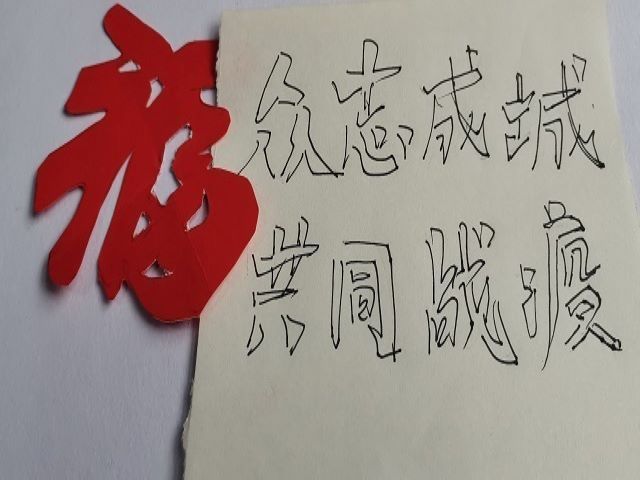 福
众志成城
共同战疫